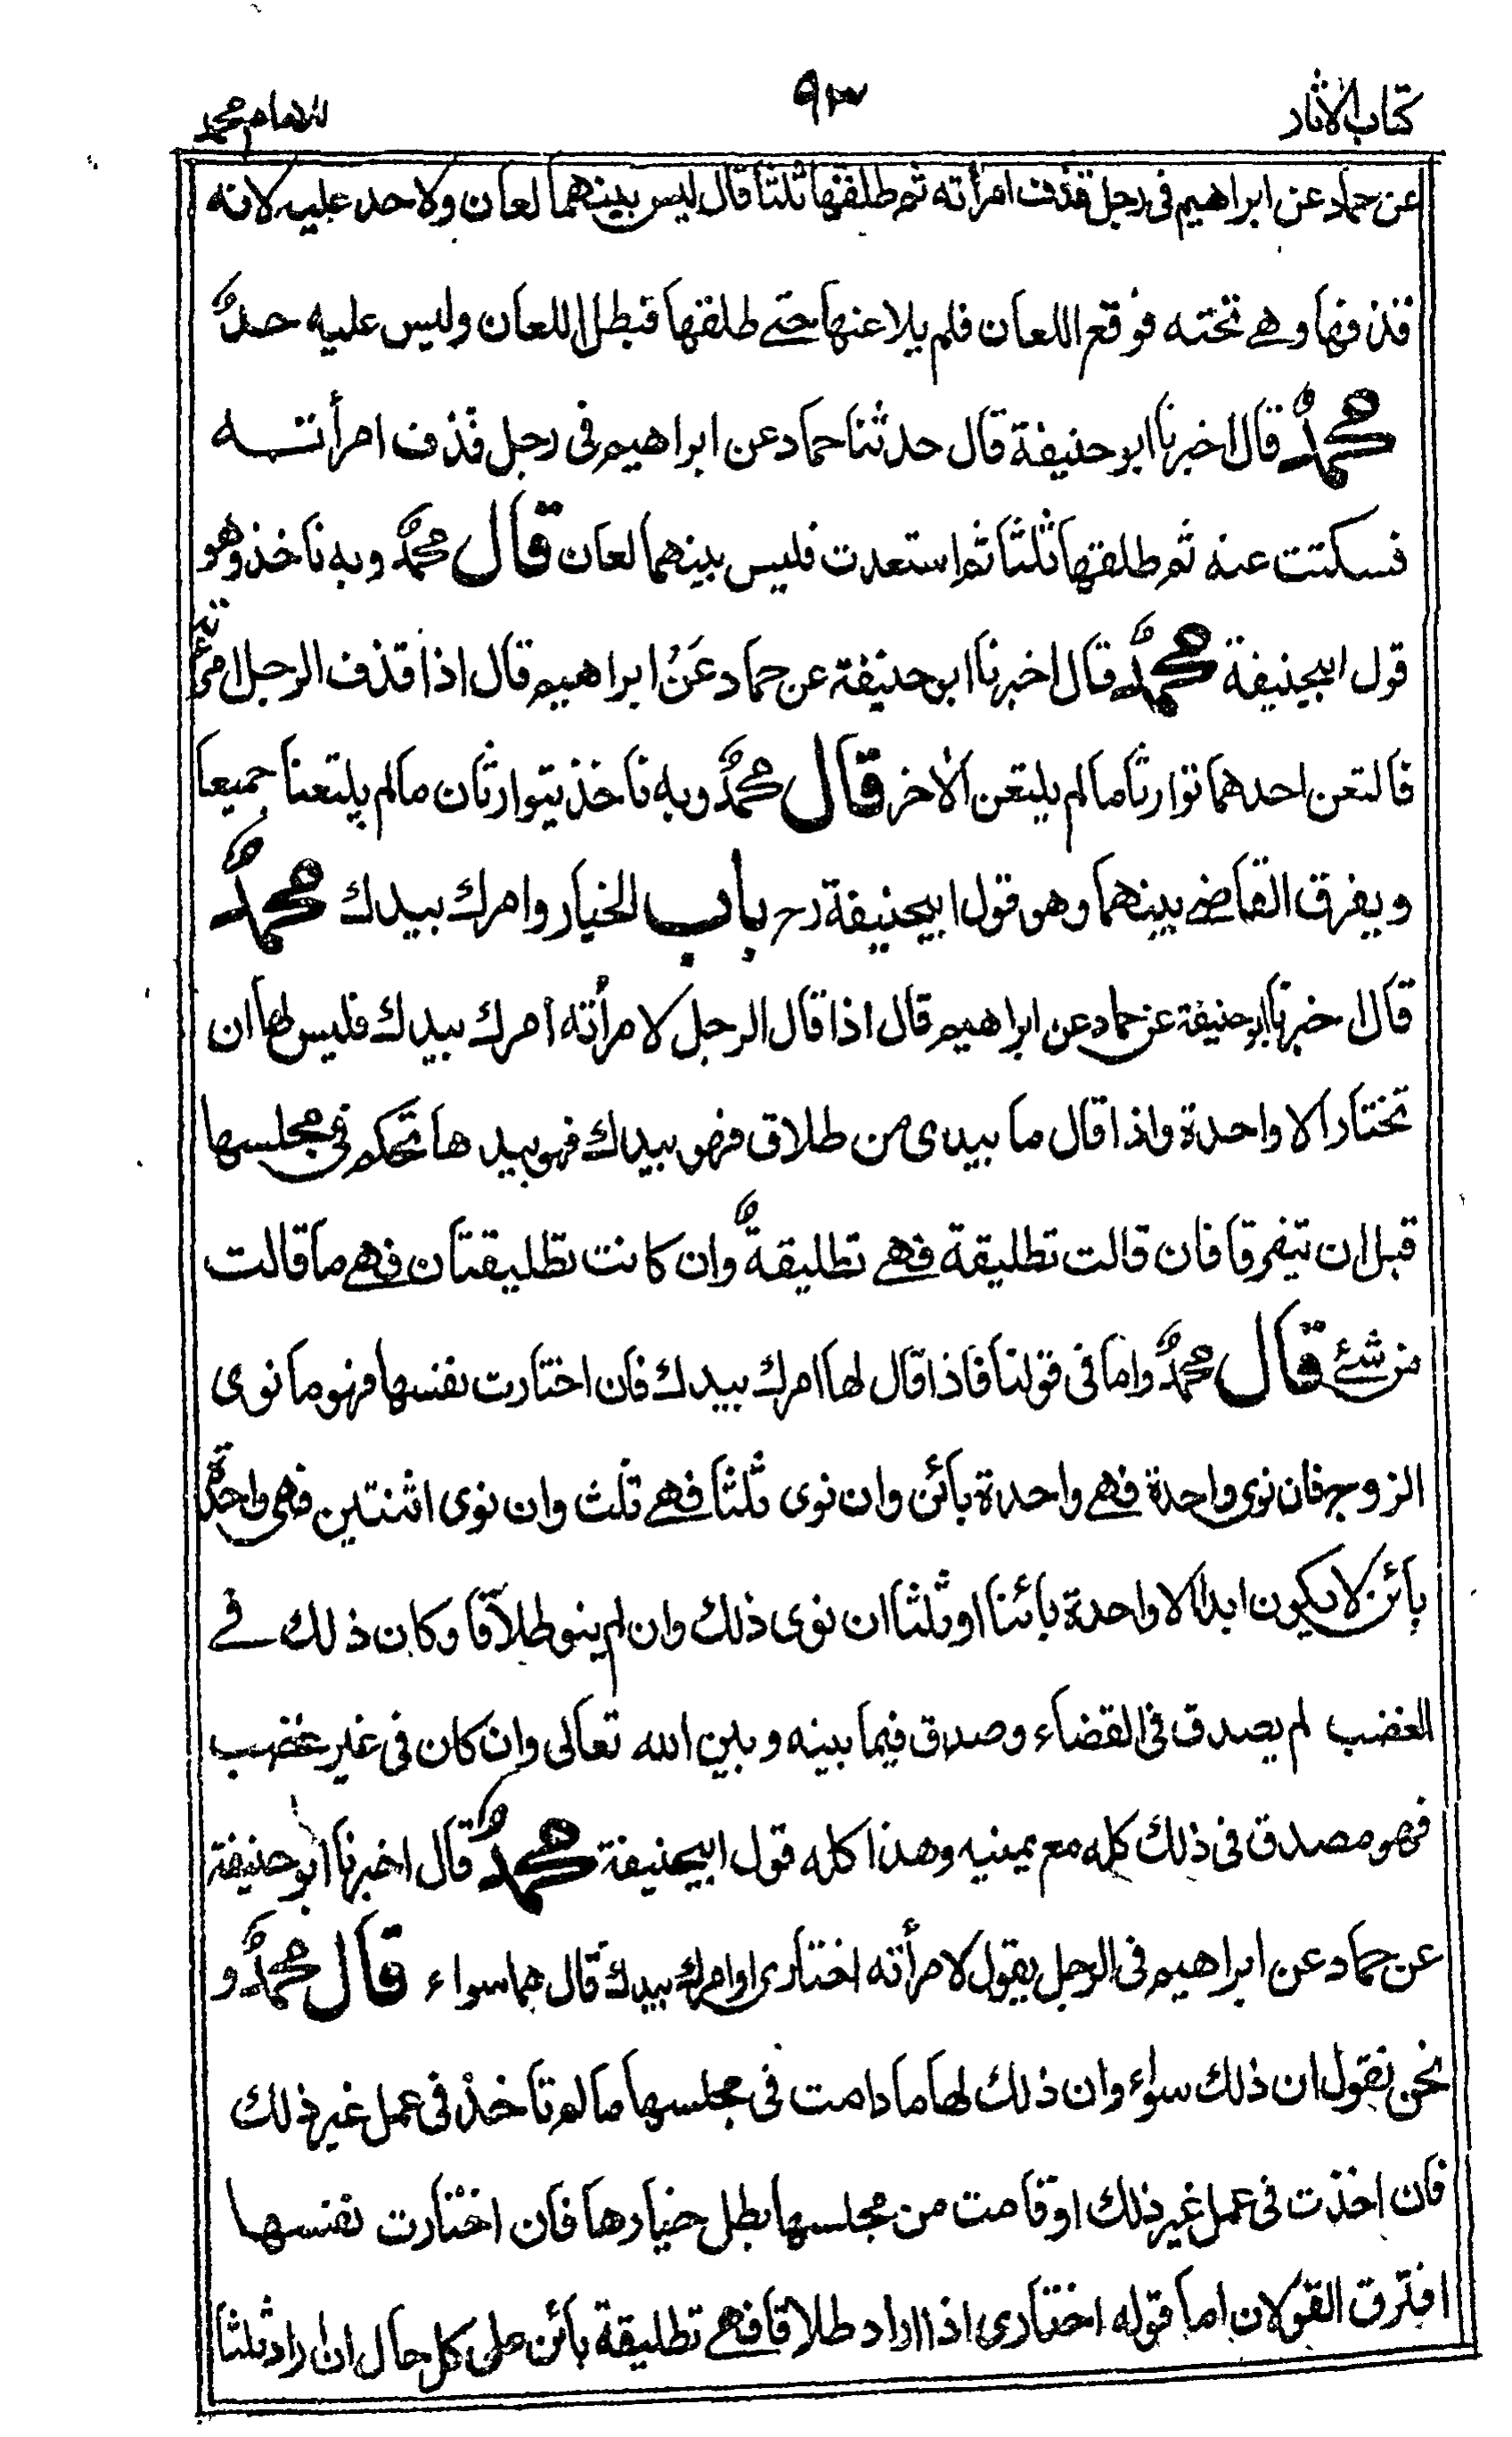 كتاب الآثار
٩٣
للامام محمد
عن حماد عن ابراهيم فى رجل قذف امرأته ثم طلقها ثلثا قال ليس بينهما لعان ولا حد عليه لانه
قذفها وهے تحته فوقع اللعان فلم يلاعنها حتے طلقها فبطل اللعان وليس عليه حد
محمد قال اخبرنا ابو حنيفة قال حدثنا حماد عن ابراهيم فى رجل قذف امرأته
فسكتت عنه ثم طلقها ثلثا ثم استعدت فليس بينهما لعان قال محمد وبه ناخذ وهو
قول ابيحنيفة محمد قال اخبرنا ابو حنيفة عن حماد عن ابراهيم قال اذا قذف الرجل امرأته
فالتعن احدهما توارثا ما لم يلتعن الآخر قال محمد وبه ناخذ يتوارثان ما لم يلتعنا جميعا
ويفرق القاضے بينهما وهو قول ابيحنيفة رح باب الخيار وامرك بيدك محمد
قال اخبرنا ابو حنيفة عن حماد عن ابراهيم قال اذا قال الرجل لامرأته امرك بيدك فليس لها ان
تختار الا واحدة واذا قال ما بيدى من طلاق فهو بيدك فهو بيدها تحكم فى مجلسها
قبل ان يتفرقا فان قالت تطليقة فهے تطليقة وان كانت تطليقتان فهے ما قالت
من شئ قال محمد واما فى قولنا فاذا قال لها امرك بيدك فان اختارت نفسها فهو ما نوى
الزوج فان نوى واحدة فهے واحدة بائن وان نوى ثلثا فهے ثلث وان نوى اثنتين فهى واحدة
بائن لا يكون ابدا الا واحدة بائنا او ثلثا ان نوى ذلك وان لم ينو طلاقا وكان ذلك فے
الغضب لم يصدق فى القضاء وصدق فيما بينه وبين الله تعالى وان كان فى غير غضب
فهو مصدق فى ذلك كله مع يمينه وهذا كله قول ابيحنيفة محمد قال اخبرنا ابو حنيفة
عن حماد عن ابراهيم فى الرجل يقول لامرأته اختارى او امرك بيدك قال هما سواء قال محمد و
نحن نقول ان ذلك سواء وان ذلك لها ما دامت فى مجلسها ما لم تاخذ فى عمل غير ذلك
فان اخذت فى عمل غير ذلك او قامت من مجلسها بطل خيارها فان اختارت نفسها
افترق القولان اما قوله اختارى اذا اراد طلاقا فهے تطليقة بائن على كل حال ان اراد ثلثا